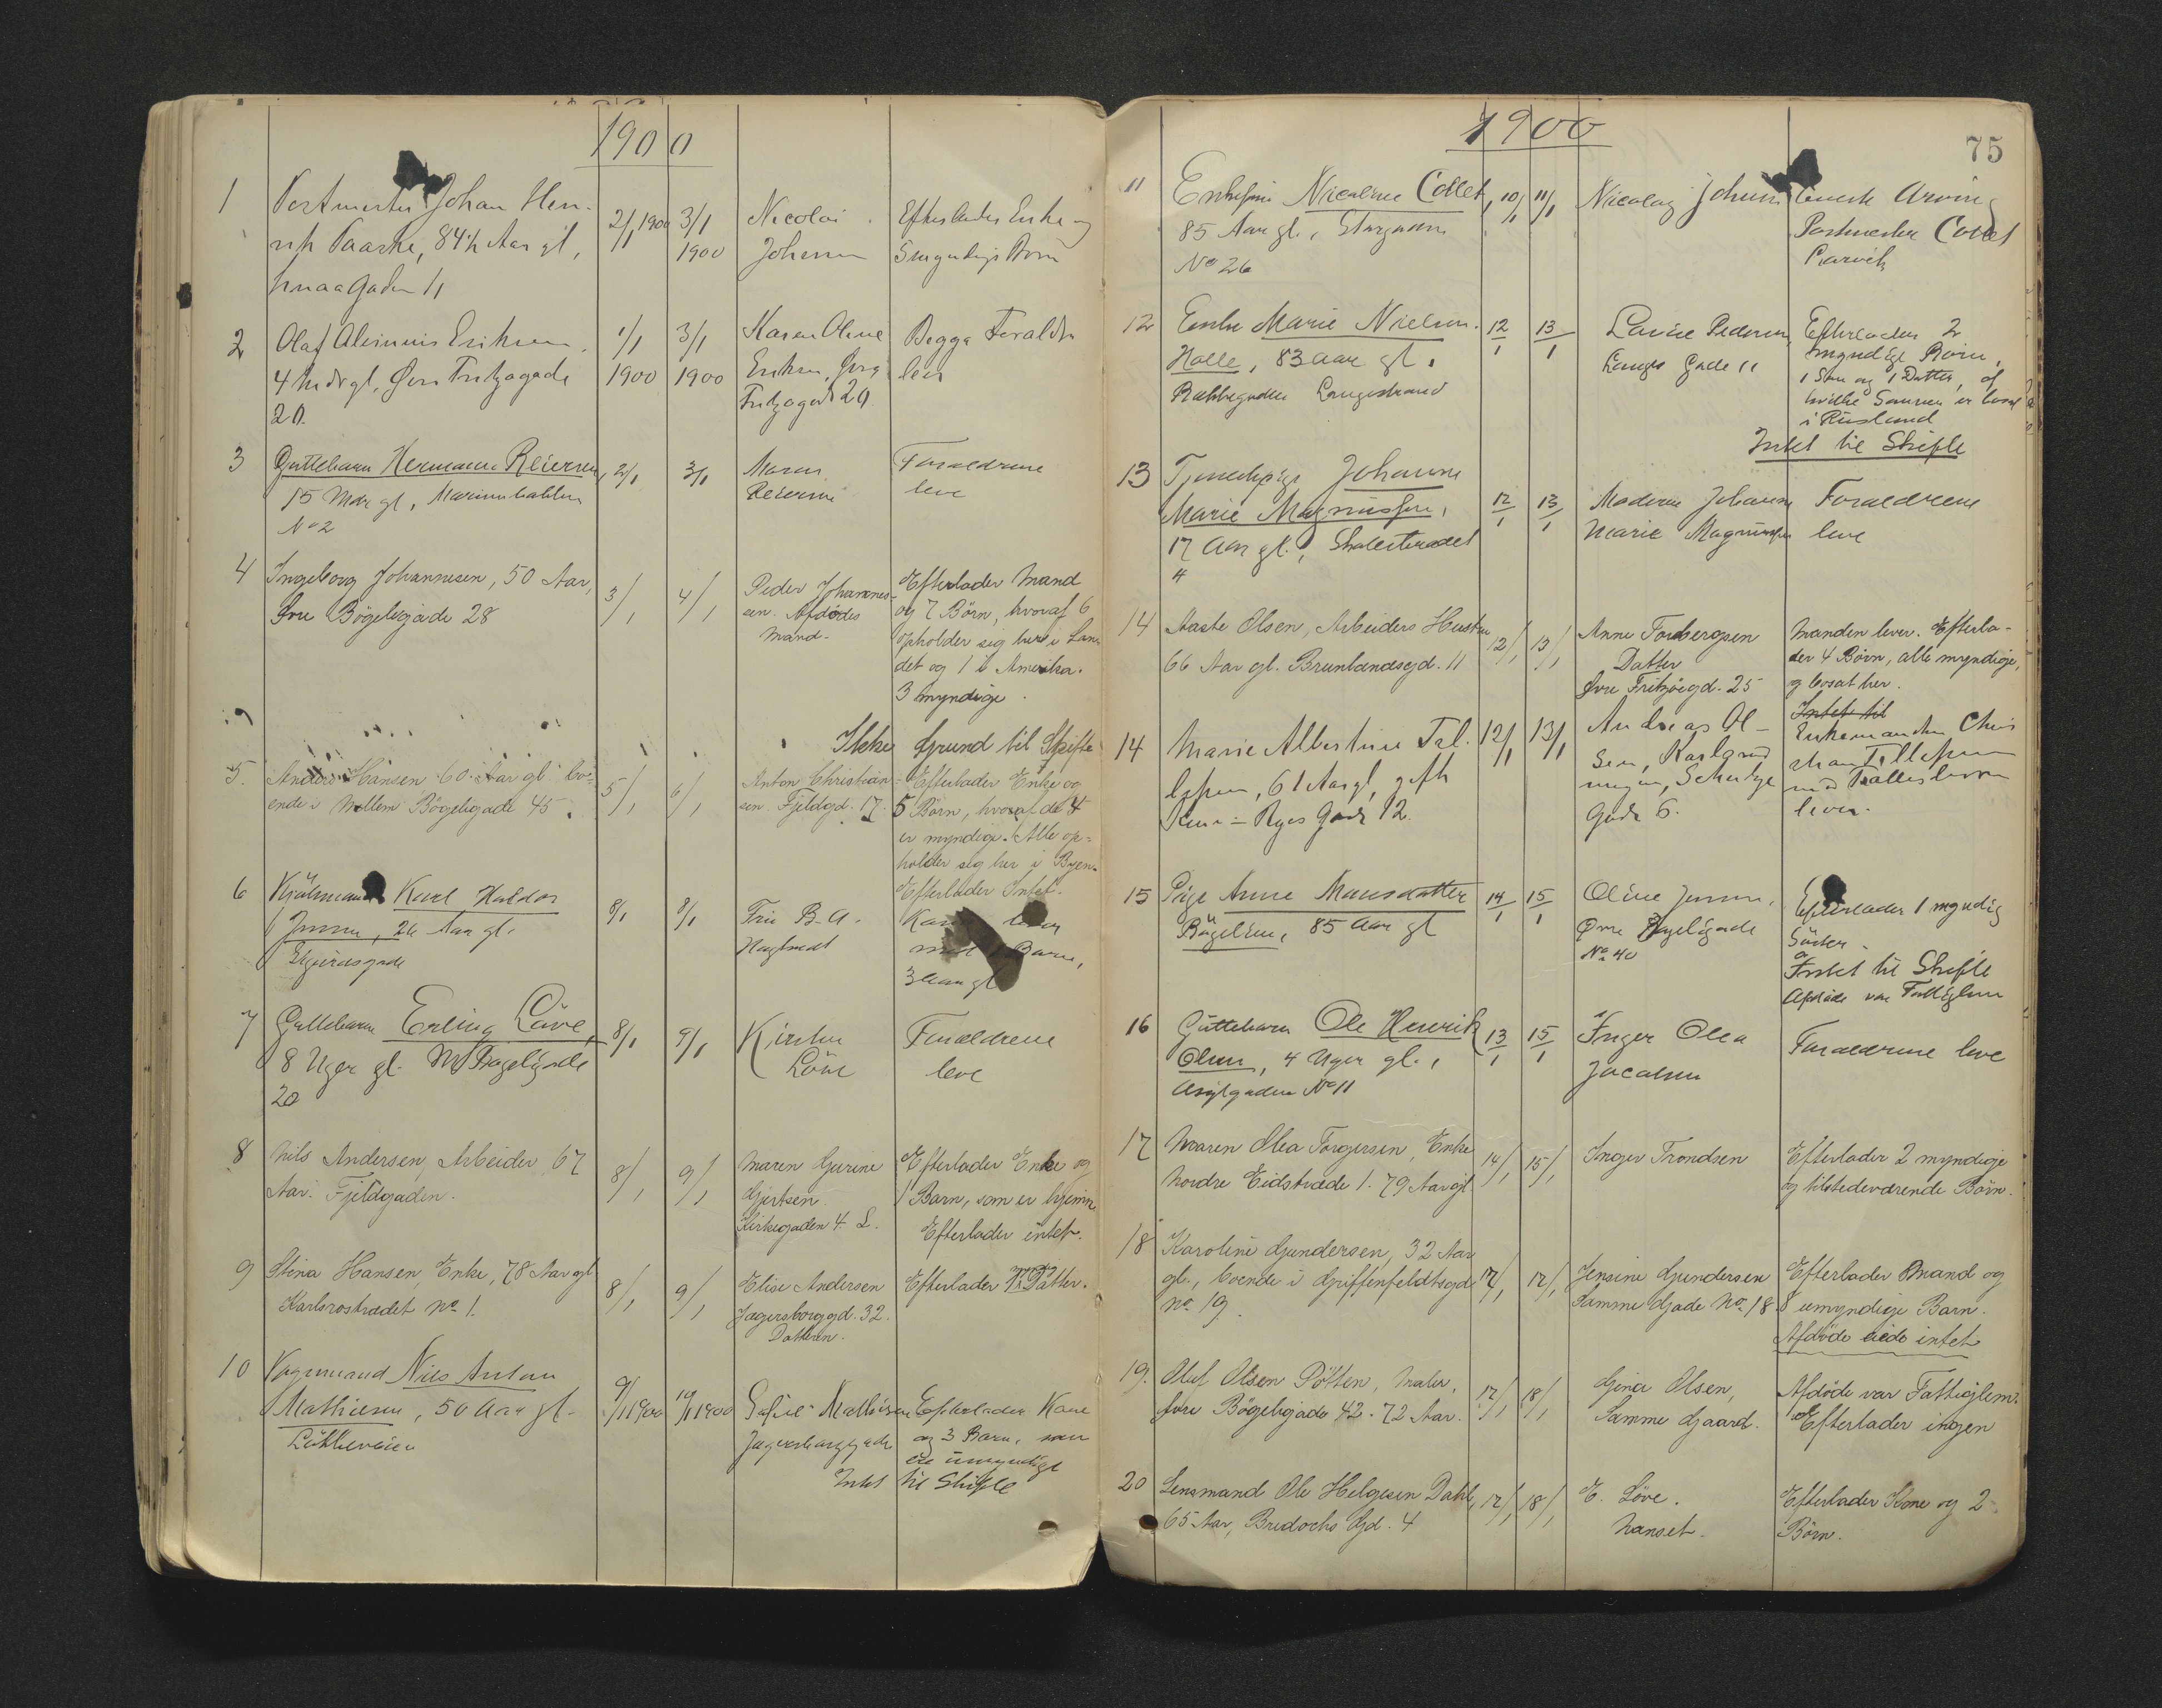 1900
1 Postmester Johan Hen-
rik Paaske, 84½ Aar gl,
Gaden 11
2/1 1900
3/1
1900
Nicolai
Johnsen
Efterlader Enke og
5 myndige Børn
2 Olaf Eriksen,
4 Mdr gl, Øvre Fritzøgade
20.
1/1
1900
3/1
1900
Karen Oline
Eriksen, Øvre
Fritzøgade 20
Begge Foræld
lever
3 Guttebarn Hermann Reiersen,
15 Mdr gl,
No 2
2/1
3/1
Maren
Reiersen
Forældrene
leve
4 Ingeborg Johannesen, 50 Aar,
Øvre Bögeligade 28
3/1
4/1
Peder Johannes-
sen. Afdödes
Mand.
Efterlader Mand
og 7 Börn, hvoraf 6
opholder sig her i Lan
det og 1 i Amerika.
3 myndige.
Ikke Grund til Skifte
5. Anders Hansen 60 Aar gl. bo-
ende i Mellem Bögeligade 45.
5/1
6/1
Anton Christian-
sen. Fjeldgd. 17.
Efterlader Enke og
5 Börn, hvoraf de 4
er myndige. Alle op-
holder sig her i Byen.
Efterlader Intet.
6 Karl Haldor
Jensen, 26 Aar gl.
8/1
8/1
B. A.
lever
Barn,
3 Aar gl
7 Guttebarn Erling Löve,
8 Uger gl. Bögeligade
20
8/1
9/1
Kirsten
Löve
Forældrene
leve
8 Nils Andersen, Arbeider, 67
Aar. Fjeldgaden.
8/1
9/1
Maren Gurine
Gjertsen
Kirkegaden 4. L.
Efterlader Enke og
1 Barn, som er hjemme
Efterlader intet.
9 Stina Hansen, Enke, 78 Aar gl
Karlsrostrædet No. 1.
8/1
9/1
Elise Andersen
Jægersborggd. 32.
Datteren.
Efterlader Datter.
10 Vognmand Nils Anton
Mathiesen, 50 Aar gl.
9/1 1900
10/1 1900
Sofie Mathisen
Jægersborggade
Efterlader Kone
og 3 Barn, som
ere umyndige
Intet til Skifte
1900
75
11 Enkefru Nicoline Collet,
85 Aar gl., Storgaden
No 26
10/1
11/1
Nicolay Johnsen
Arving
Postmester Collet
Larvik
12 Enke Marie Nielsen
Holle, 83 Aar gl.
Langestrand
12/1
13/1
Lovise Pedersen,
Langes Gade 11
Efterlader 2
myndige Börn,
1 Sön og 1 Datter, af
hvilke Sönnen er bosat
i Rusland
Intet til Skifte
13 Tjenestepige Johanne
Marie Magnussen,
17 Aar gl.,
4
12/1
13/1
Moderen Johanne
Marie Magnussen
Forældrene
leve
14 Aaste Olsen, Arbeiders Hustru
66 Aar gl. Brunlandsgd. 11
12/1
13/1
Anne Torbergsen
Datter
Øvre Fritzöegd. 25
Manden lever. Efterla-
der 4 Börn, alle myndige,
og bosat her.
Intet til
14 Marie Albertine Tol-
lefsen, 61 Aar gl, gift
Ryes Gade 12.
12/1
13/1
Andreas Ol-
sen,
Schultze
Gade 6.
Enkemanden Chri
stian Tollefsen
med Fællesbarn
lever.
15 Pige Anne Mansdatter
Bögelien, 85 Aar gl
14/1
15/1
Oline Jensen,
Øvre Bögeligade
No 40
Efterlader 1 myndig
Söster.
Intet til Skifte
Afdöde var Fattiglem
16 Guttebarn Ole Henrik
Olsen, 4 Uger gl.,
Asylgaden No 11
13/1
15/1
Inger Olea
Jacobsen
Forældrene leve
17 Maren Olea Torgersen, Enke
Nordre Eidstræde 1. 79 Aar gl
14/1
15/1
Inger Trondsen
Efterlader 2 myndige
og tilstedeværende Börn.
18 Karoline Gundersen, 32 Aar
gl., boende i Griffenfeldtsgd
No. 19.
17/1
17/1
Jensine Gundersen
Samme Gade No. 18
Efterlader Mand og
8 umyndige Barn.
Afdöde eiede intet
19. Oluf Olsen Pötten, Maler,
Øvre Bögeligade 42. 72 Aar.
17/1
18/1
Gina Olsen,
Samme Gaard.
Afdöde var Fattiglem.
Efterlader ingen
20 Lensmand Ole Helgesen Dahl,
65 Aar, Bredochs Gd. 4
17/1
18/1
E. Löve.
Nanset.
Efterlader Kone og 2
Börn.